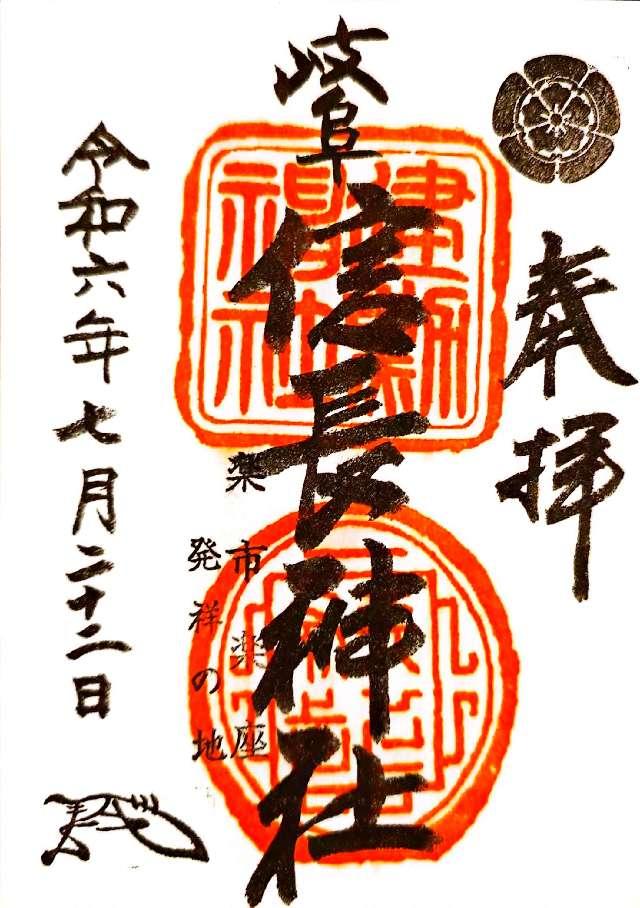 奉拝
岐阜
信長神社
建勲神社
楽市楽座
発祥の地
令和六年七月二十二日